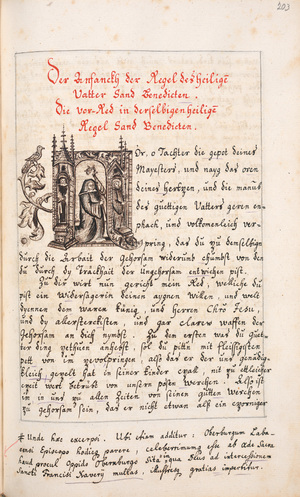 203
Der Anfanckh der Regel des heiligē
Vatter Sand Benedicten.
Die vor-Red in derselbigen heiligē
Regel Sand Benedicten.
Or. o Tochter die gepot deines
Maysters, und nayg das oren
deines hertzen, und die manus
des güettigen Vatters geren en-
phach, und volkomenleich ver-
pring, das du zu demselbigen
durch die Arbait der Gehorsam widerumb chumbst von den
du durch dy Trackhait der Ungehorsam entwichen pist.
Zu dir wirt nun gericht mein Red, welliche du
pist ein widersagerin deinen aygnen willen, und welt
dyennen dem waren künig, und herren Chrō Jesu,
und dy allersterckisten, und gar claren waffen der
Gehorsam an dich nymbst. Zu dem ersten was du guet-
ter ding anhebst, sol du pitten mit fleissigisten
pett von im ze volpringen, also das er der uns
hat in seiner kinder zall, nit zu ettleicher
zeit wert betrübt von unsern posen werchen. Also ist
im in uns zu allen zeiten von seinen gutten werchen
zu gehorsam sein, das er nicht etwan als ein zorniger
Unde hæc excerpsi. Ubi etiam additur: Oberburgum Laba-
censi Episcopo hodieq parere, celeberrimumq esse ob æde Sacra
haud procul Oppido Obernburgo Sita in qua Deus ad intercessionem
Sancti Francisci Xaverij multas, illustresq gratias impertitur.